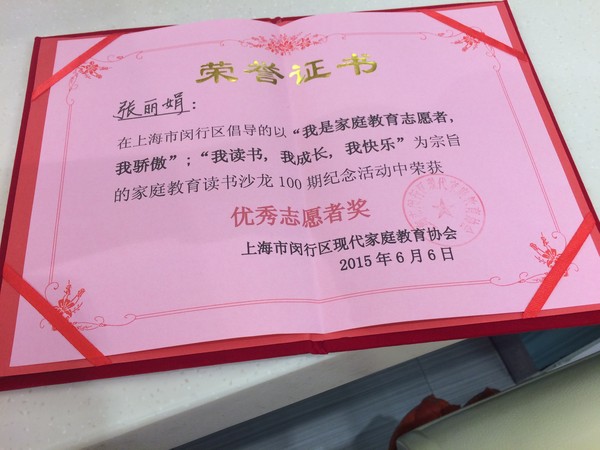 荣誉证书
张丽娟：
在上海市闵行区倡导的以“我是家庭教育志愿者，
我骄傲”；“我读书，我成长，我快乐”为宗旨
的家庭教育读书沙龙100期纪念活动中荣获
优秀志愿者奖
上海市闵行区现代家庭教育协会
2015年6月6日